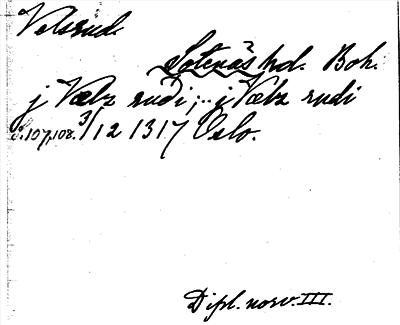 Velsrud.
Sotenäs hd. Boh.
j Vælz rudi; .. i Vælz rudi
s. 107, 108. 3/12 1317 Oslo.
Dipl. norv. III.